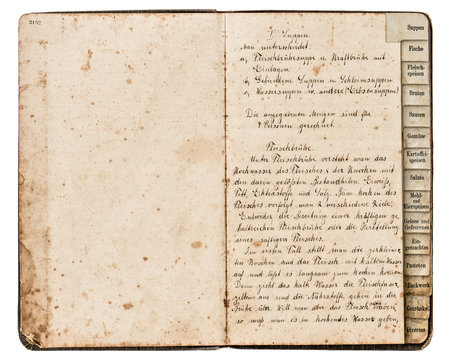 2152
I Suppen
Man unterscheidet:
a, Fleischbrühsuppe u. Kraftbrühe mit
Einlagen
b, Gebundene Suppen u. Schleimsuppen
c, Wassersuppen u. andere (Erbsensuppen)
Die angegebenen Mengen sind für
Personen gerechnet.
Fleischbrühe.
Unter Fleischbrühe versteht man das
Kochwasser des Fleisches u. der Knochen mit
den darin gelösten Bestandteilen: Eiweiß,
Fett, Extraktstoffe und Salz. Beim Kochen des
Fleisches verfolgt man 2 verschiedene Ziele:
Entweder die Bereitung einer kräftigen ge-
haltreichen Fleischbrühe oder die Herstellung
eines saftigen Fleisches.
Im ersten Fall stellt man die zerkleiner-
ten Knochen und das Fleisch mit kaltem Wasser
auf und läßt es langsam zum Kochen kommen.
Dann zieht das kalte Wasser die Fleischfaser
aus und die Nährstoffe gehen in die
Brühe über. Will man aber das Fleisch
so muß man es in kochendes Wasser geben,
Suppen
Fische
Fleisch-
speisen
Braten
Saucen
Gemüse
Kartoffel-
speisen
Salate
Mehl-
und
Eierspeisen
Gelees und
Gefrorenes
Ein-
gemachtes
Pasteten
Backwerk
Diverses